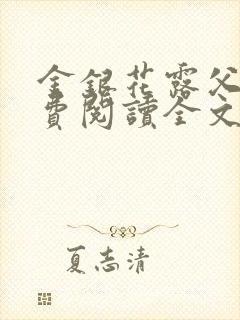 金銀花露父
費閱讀全文
夏志清